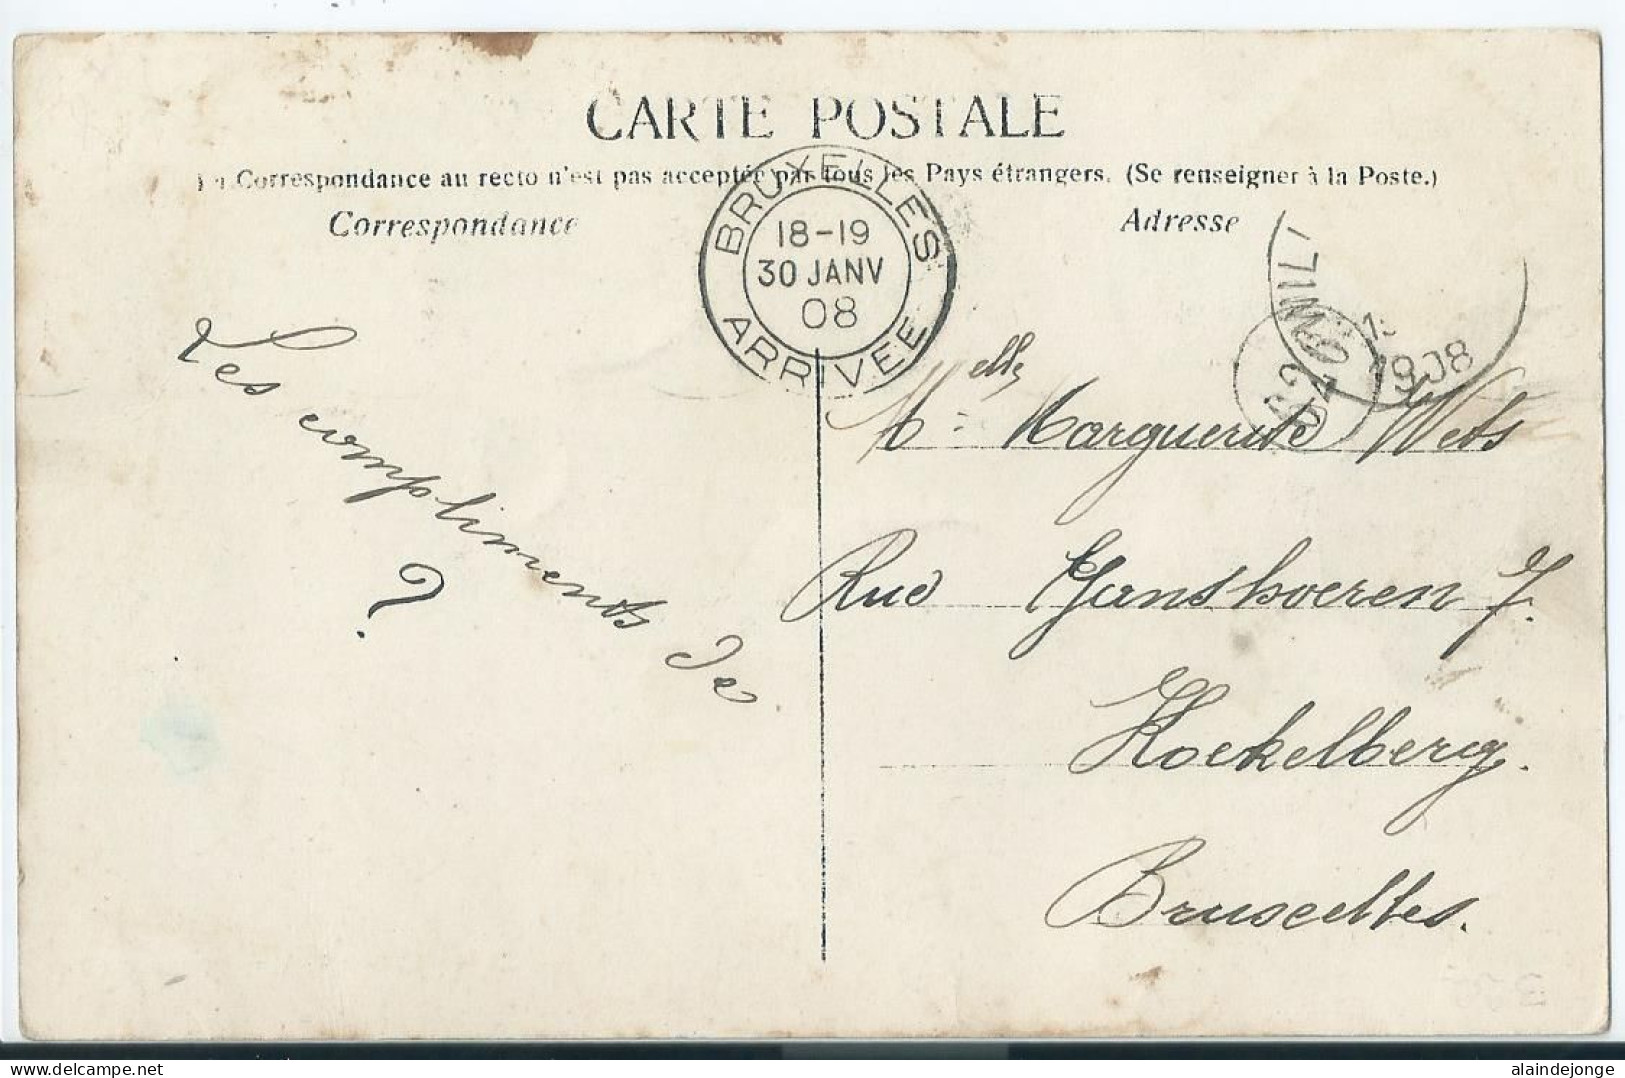 CARTE POSTALE
La Correspondance au recto n'est pas acceptée par tous les Pays étrangers. (Se renseigner à la Poste.)
Correspondance
Adresse
BRUXELLES
18-19
30 JANV
08
ARRIVEE
1908
Les compliments de
?
Melle Marguerite Wets
Rue Ganshoeren 7.
Koekelberg.
Bruxelles.
alaindejonge